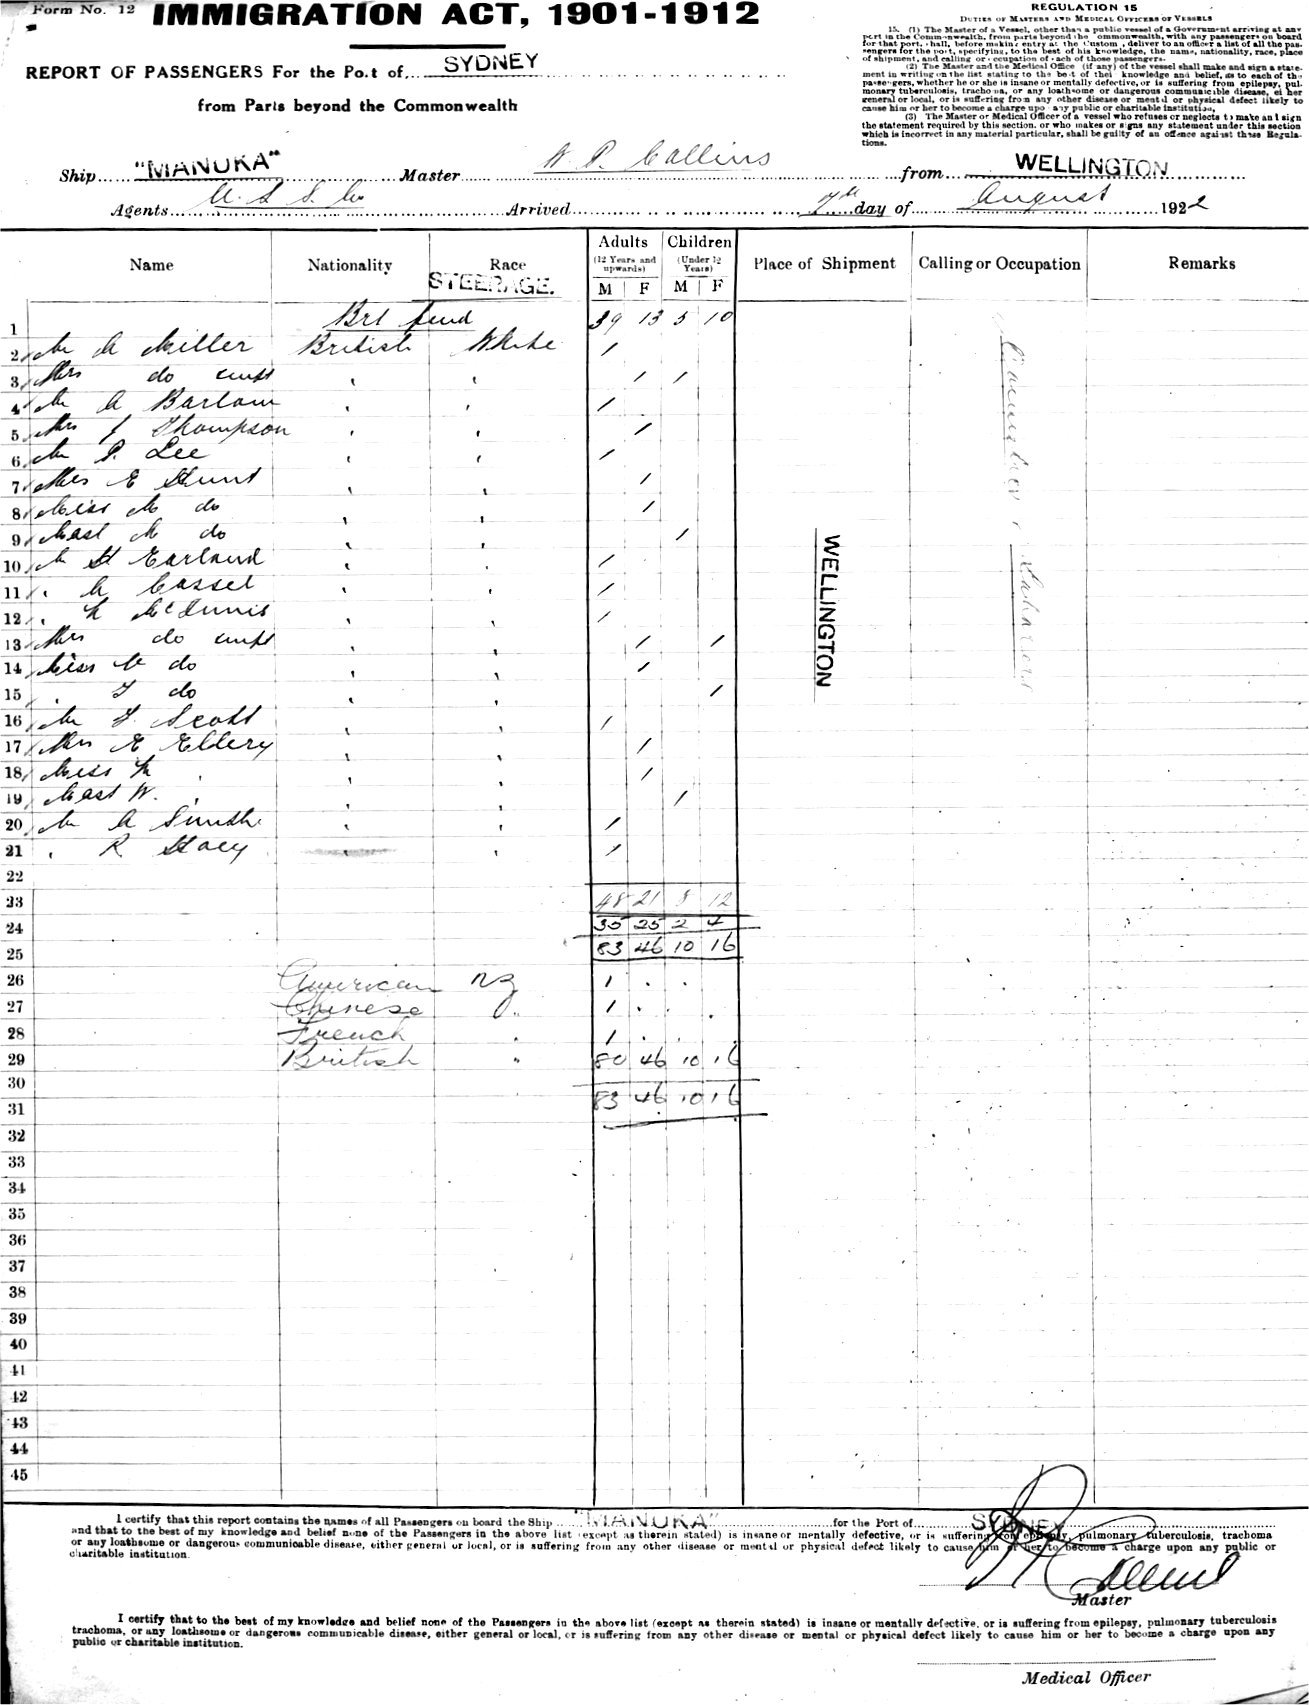 Form No. 12
IMMIGRATION ACT, 1901-1912
REPORT OF PASSENGERS For the Po.t of SYDNEY
from Parts beyond the Commonwealth
REGULATION 15
DUTIES OF MASTERS AND MEDICAL OFFICERS OF VESSELS
15. (1) The Master of a Vessel, other than a public vessel of a Government arriving at any
port in the Commonwealth, from parts beyond the Commonwealth, with any passengers on board
for that port, shall, before making entry at the Custom, deliver to an officer a list of all the pas-
sengers for the port, specifying, to the best of his knowledge, the name, nationality, race, place
of shipment, and calling or occupation of each of those passengers.
(2) The Master and the Medical Office (if any) of the vessel shall make and sign a state-
ment in writing on the list stating to the best of their knowledge and belief, as to each of the
passengers, whether he or she is insane or mentally defective, or is suffering from epilepsy, pul-
monary tuberculosis, trachoma, or any loathsome or dangerous communicable disease, either
general or local, or is suffering from any other disease or mental or physical defect likely to
cause him or her to become a charge upon any public or charitable institution.
(3) The Master or Medical Officer of a vessel who refuses or neglects to make and sign
the statement required by this section, or who makes or signs any statement under this section
which is incorrect in any material particular, shall be guilty of an offence against these Regula-
tions.
Ship "MANUKA" Master W. P. Collins from WELLINGTON
Agents U. S. S. Co Arrived 7th day of August 1922
Name Nationality Race Adults Children Place of Shipment Calling or Occupation Remarks
(12 Years and upwards) (Under 12 Years)
STEERAGE.
M F M F
1 Brt fwd 39 13 5 10
2 Mr A Miller British White /
3 Mrs do inft / /
4 Mr A Barlow /
5 Mrs J Thompson /
6 Mr P. Lee /
7 Mrs E Hunt /
8 Miss M do /
9 Mast M do /
10 Mr H Earland /
11 " G Cassel /
12 " McInnis /
13 Mrs do inft / /
14 Miss do /
15 " do /
16 Mr Scott /
17 Mrs E Ellery /
18 Miss " /
19 Mast W. " /
20 Mr A Smith /
21 " R Stacy /
22
23 48 21 8 12
24 35 25 2 4
25 83 46 10 16
26 American NZ 1 . .
27 Chinese " 1 . .
28 French " 1 . .
29 British " 80 46 10 16
30
31 83 46 10 16
32
33
34
35
36
37
38
39
40
41
42
43
44
45
WELLINGTON
I certify that this report contains the names of all Passengers on board the Ship "MANUKA" for the Port of SYDNEY
and that to the best of my knowledge and belief none of the Passengers in the above list (except as therein stated) is insane or mentally defective, or is suffering from epilepsy, pulmonary tuberculosis, trachoma
or any loathsome or dangerous communicable disease, either general or local, or is suffering from any other disease or mental or physical defect likely to cause him or her to become a charge upon any public or
charitable institution.
Master
I certify that to the best of my knowledge and belief none of the Passengers in the above list (except as therein stated) is insane or mentally defective, or is suffering from epilepsy, pulmonary tuberculosis
trachoma, or any loathsome or dangerous communicable disease, either general or local, or is suffering from any other disease or mental or physical defect likely to cause him or her to become a charge upon any
public or charitable institution.
Medical Officer